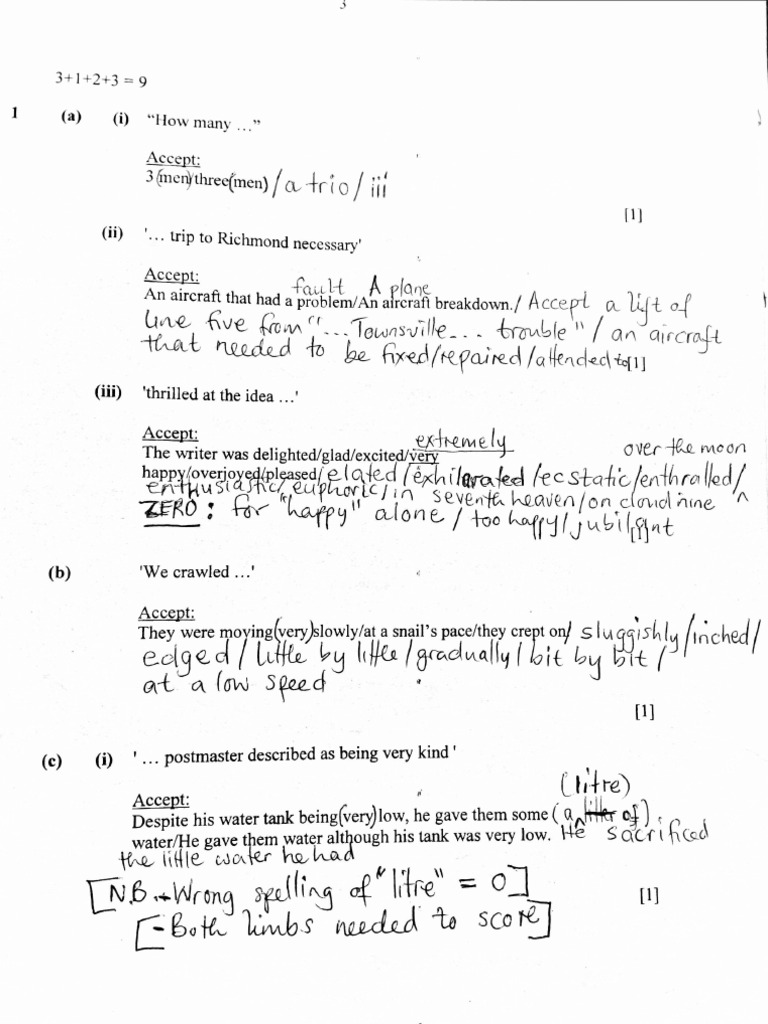 3
3+1+2+3 = 9
1 (a) (i) "How many ..."
Accept:
3 (men)/three(men) / a trio / iii
[1]
(ii) '... trip to Richmond necessary'
Accept:
fault A plane
An aircraft that had a problem/An aircraft breakdown./ Accept a lift of
line five from "...Townsville... trouble" / an aircraft
that needed to be fixed/repaired/attended to [1]
(iii) 'thrilled at the idea ...'
Accept:
extremely
The writer was delighted/glad/excited/very over the moon
happy/overjoyed/pleased/ elated / exhilarated / ecstatic/enthralled/
enthusiastic/euphoric/in seventh heaven/on cloud nine ^
ZERO : for "happy" alone / too happy / jubilant
[1]
(b) 'We crawled ...'
Accept:
They were moving(very)slowly/at a snail's pace/they crept on/ sluggishly/inched/
edged / little by little / gradually / bit by bit /
at a low speed
[1]
(c) (i) ' ... postmaster described as being very kind '
(litre)
Accept:
Despite his water tank being(very)low, he gave them some ( a ^ litter of) .
water/He gave them water although his tank was very low. He sacrificed
the little water he had
[N.B. - Wrong spelling of "litre" = 0]
[1]
[- Both limbs needed to score]